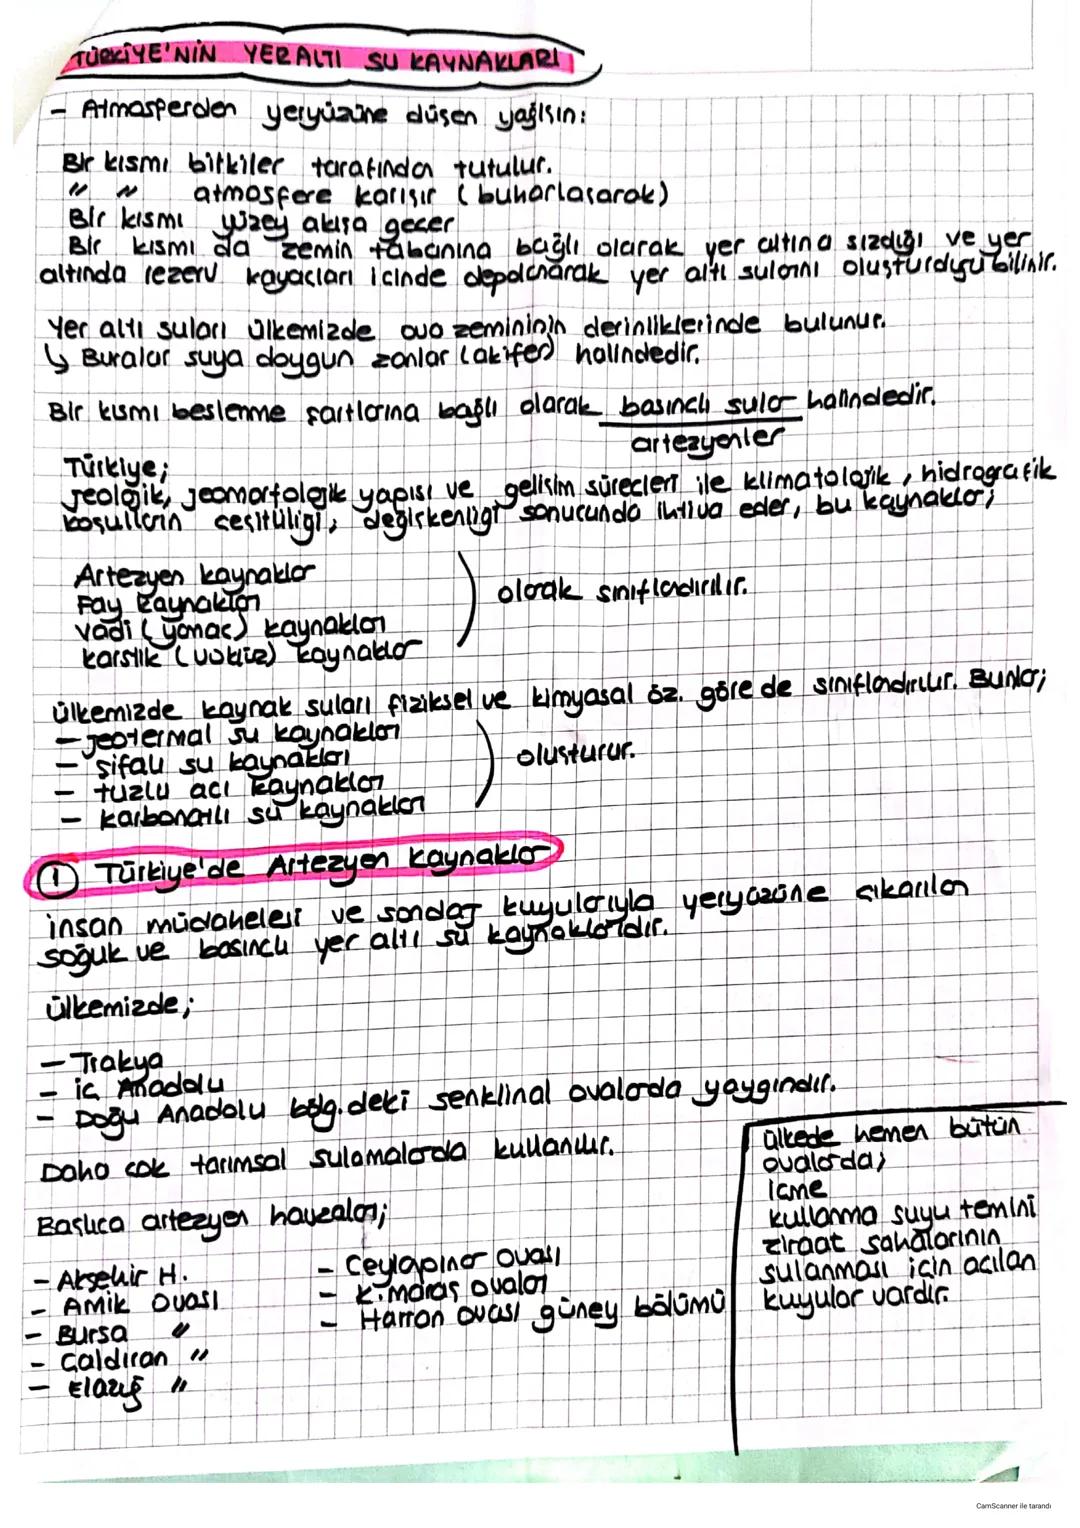 TÜRKİYE'NİN YERALTI SU KAYNAKLARI
- Atmosferden yeryüzüne düşen yağışın:
Bir kısmı bitkiler tarafından tutulur.
" " atmosfere karışır (buharlaşarak)
Bir kısmı yüzey akışa geçer
Bir kısmı da zemin tabanına bağlı olarak yer altına sızdığı ve yer
altında rezerv kayaçları içinde depolanarak yer altı sularını oluşturduğu bilinir.
Yer altı suları ülkemizde ova zemininin derinliklerinde bulunur.
↳ Buralar suya doygun zonlar (akifer) halindedir.
Bir kısmı beslenme şartlarına bağlı olarak basınçlı sular halindedir.
artezyenler
Türkiye;
jeolojik, jeomorfolojik yapısı ve gelişim süreçleri ile klimatolojik, hidrografik
koşulların çeşitliliği, değişkenliği sonucunda ihtiva eder, bu kaynaklar;
Artezyen kaynaklar
Fay kaynakları
Vadi (yamaç) kaynakları
karstik (voklüz) kaynaklar
olarak sınıflandırılır.
ülkemizde kaynak suları fiziksel ve kimyasal öz. göre de sınıflandırılır. Bunlar;
- jeotermal su kaynakları
- şifalı su kaynakları
- tuzlu acı kaynakları
- karbonatlı su kaynakları
oluşturur.
① Türkiye'de Artezyen kaynaklar
insan müdahelesi ve sondaj kuyularıyla yeryüzüne çıkarılan
soğuk ve basınçlı yer altı su kaynaklarıdır.
ülkemizde;
- Trakya
- iç Anadolu
- Doğu Anadolu bölg. deki senklinal ovalarda yaygındır.
Daha çok tarımsal sulamalarda kullanılır.
Başlıca artezyen havzaları;
- Akşehir H.
- Amik Ovası
- Bursa "
- Çaldıran "
- Elazığ "
- Ceylanpınar ovası
- K.maraş ovaları
- Harran ovası güney bölümü
ülkede hemen bütün
ovalarda;
içme
kullanma suyu temini
ziraat sahalarının
sulanması için açılan
kuyular vardır.
CamScanner ile tarandı